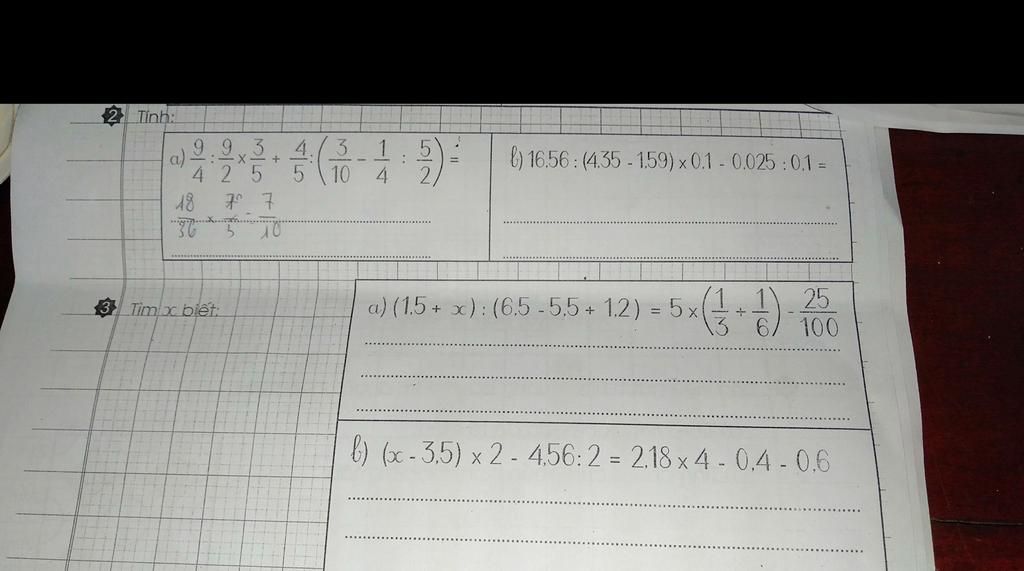 2 Tính:
a) 9/4 : 9/2 × 3/5 + 4/5 : (3/10 - 1/4 : 5/2) =
18/36 × - 7/10
b) 16,56 : (4,35 - 1,59) × 0,1 - 0,025 : 0,1 =
3 Tìm x biết:
a) (1,5 + x) : (6,5 - 5,5 + 1,2) = 5 × (1/3 + 1/6) - 25/100
b) (x - 3,5) × 2 - 4,56 : 2 = 2,18 × 4 - 0,4 - 0,6